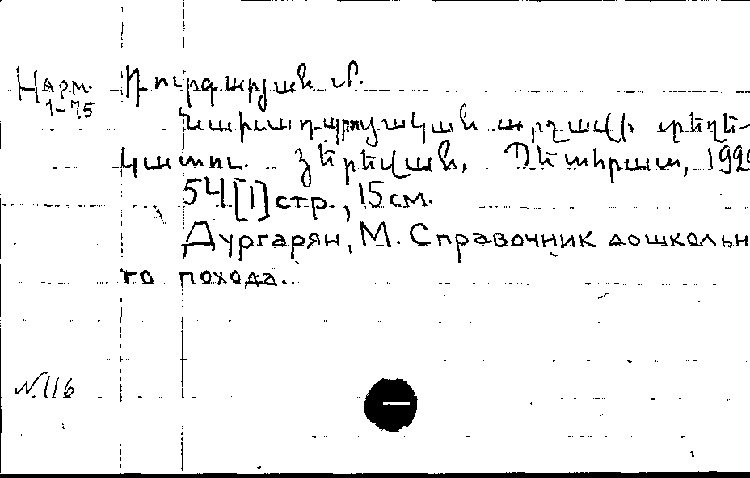 Нарм. Դուրգարյան Մ.
1-75
Նախադպրոցական արշավի տեղե-
կատու. Երևան, Պետհրատ, 192
54.[1] стр., 15 см.
Дургарян, М. Справочник дошкольн
го похода.
N.116